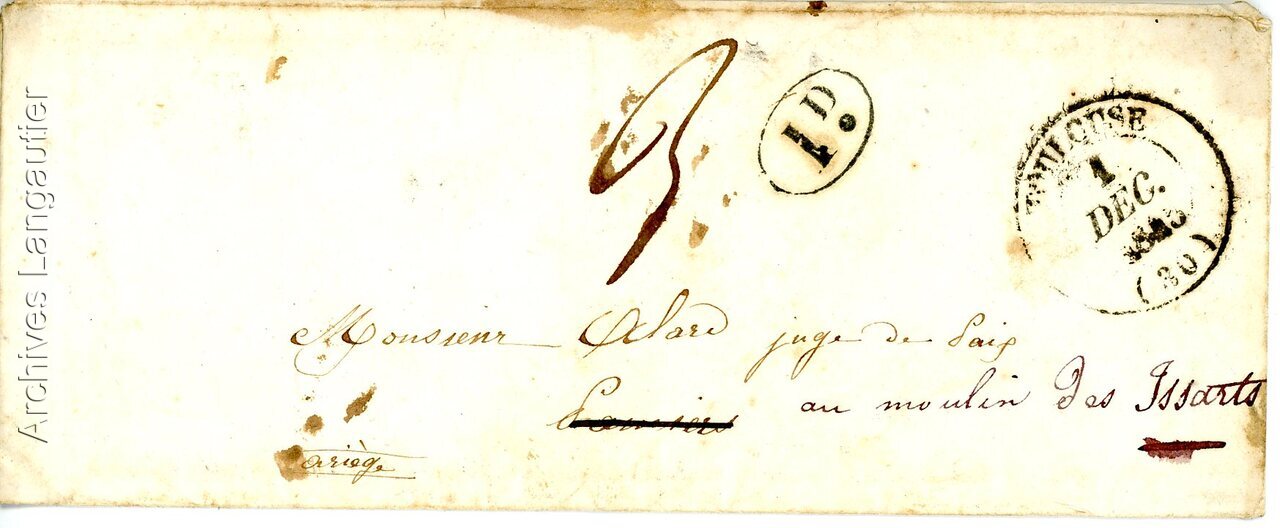 Archives Langautier
3
1 D
TOULOUSE
1
DEC.
(30)
Monsieur Alard juge de Paix
Pamiers
au moulin Des Issarts
ariège